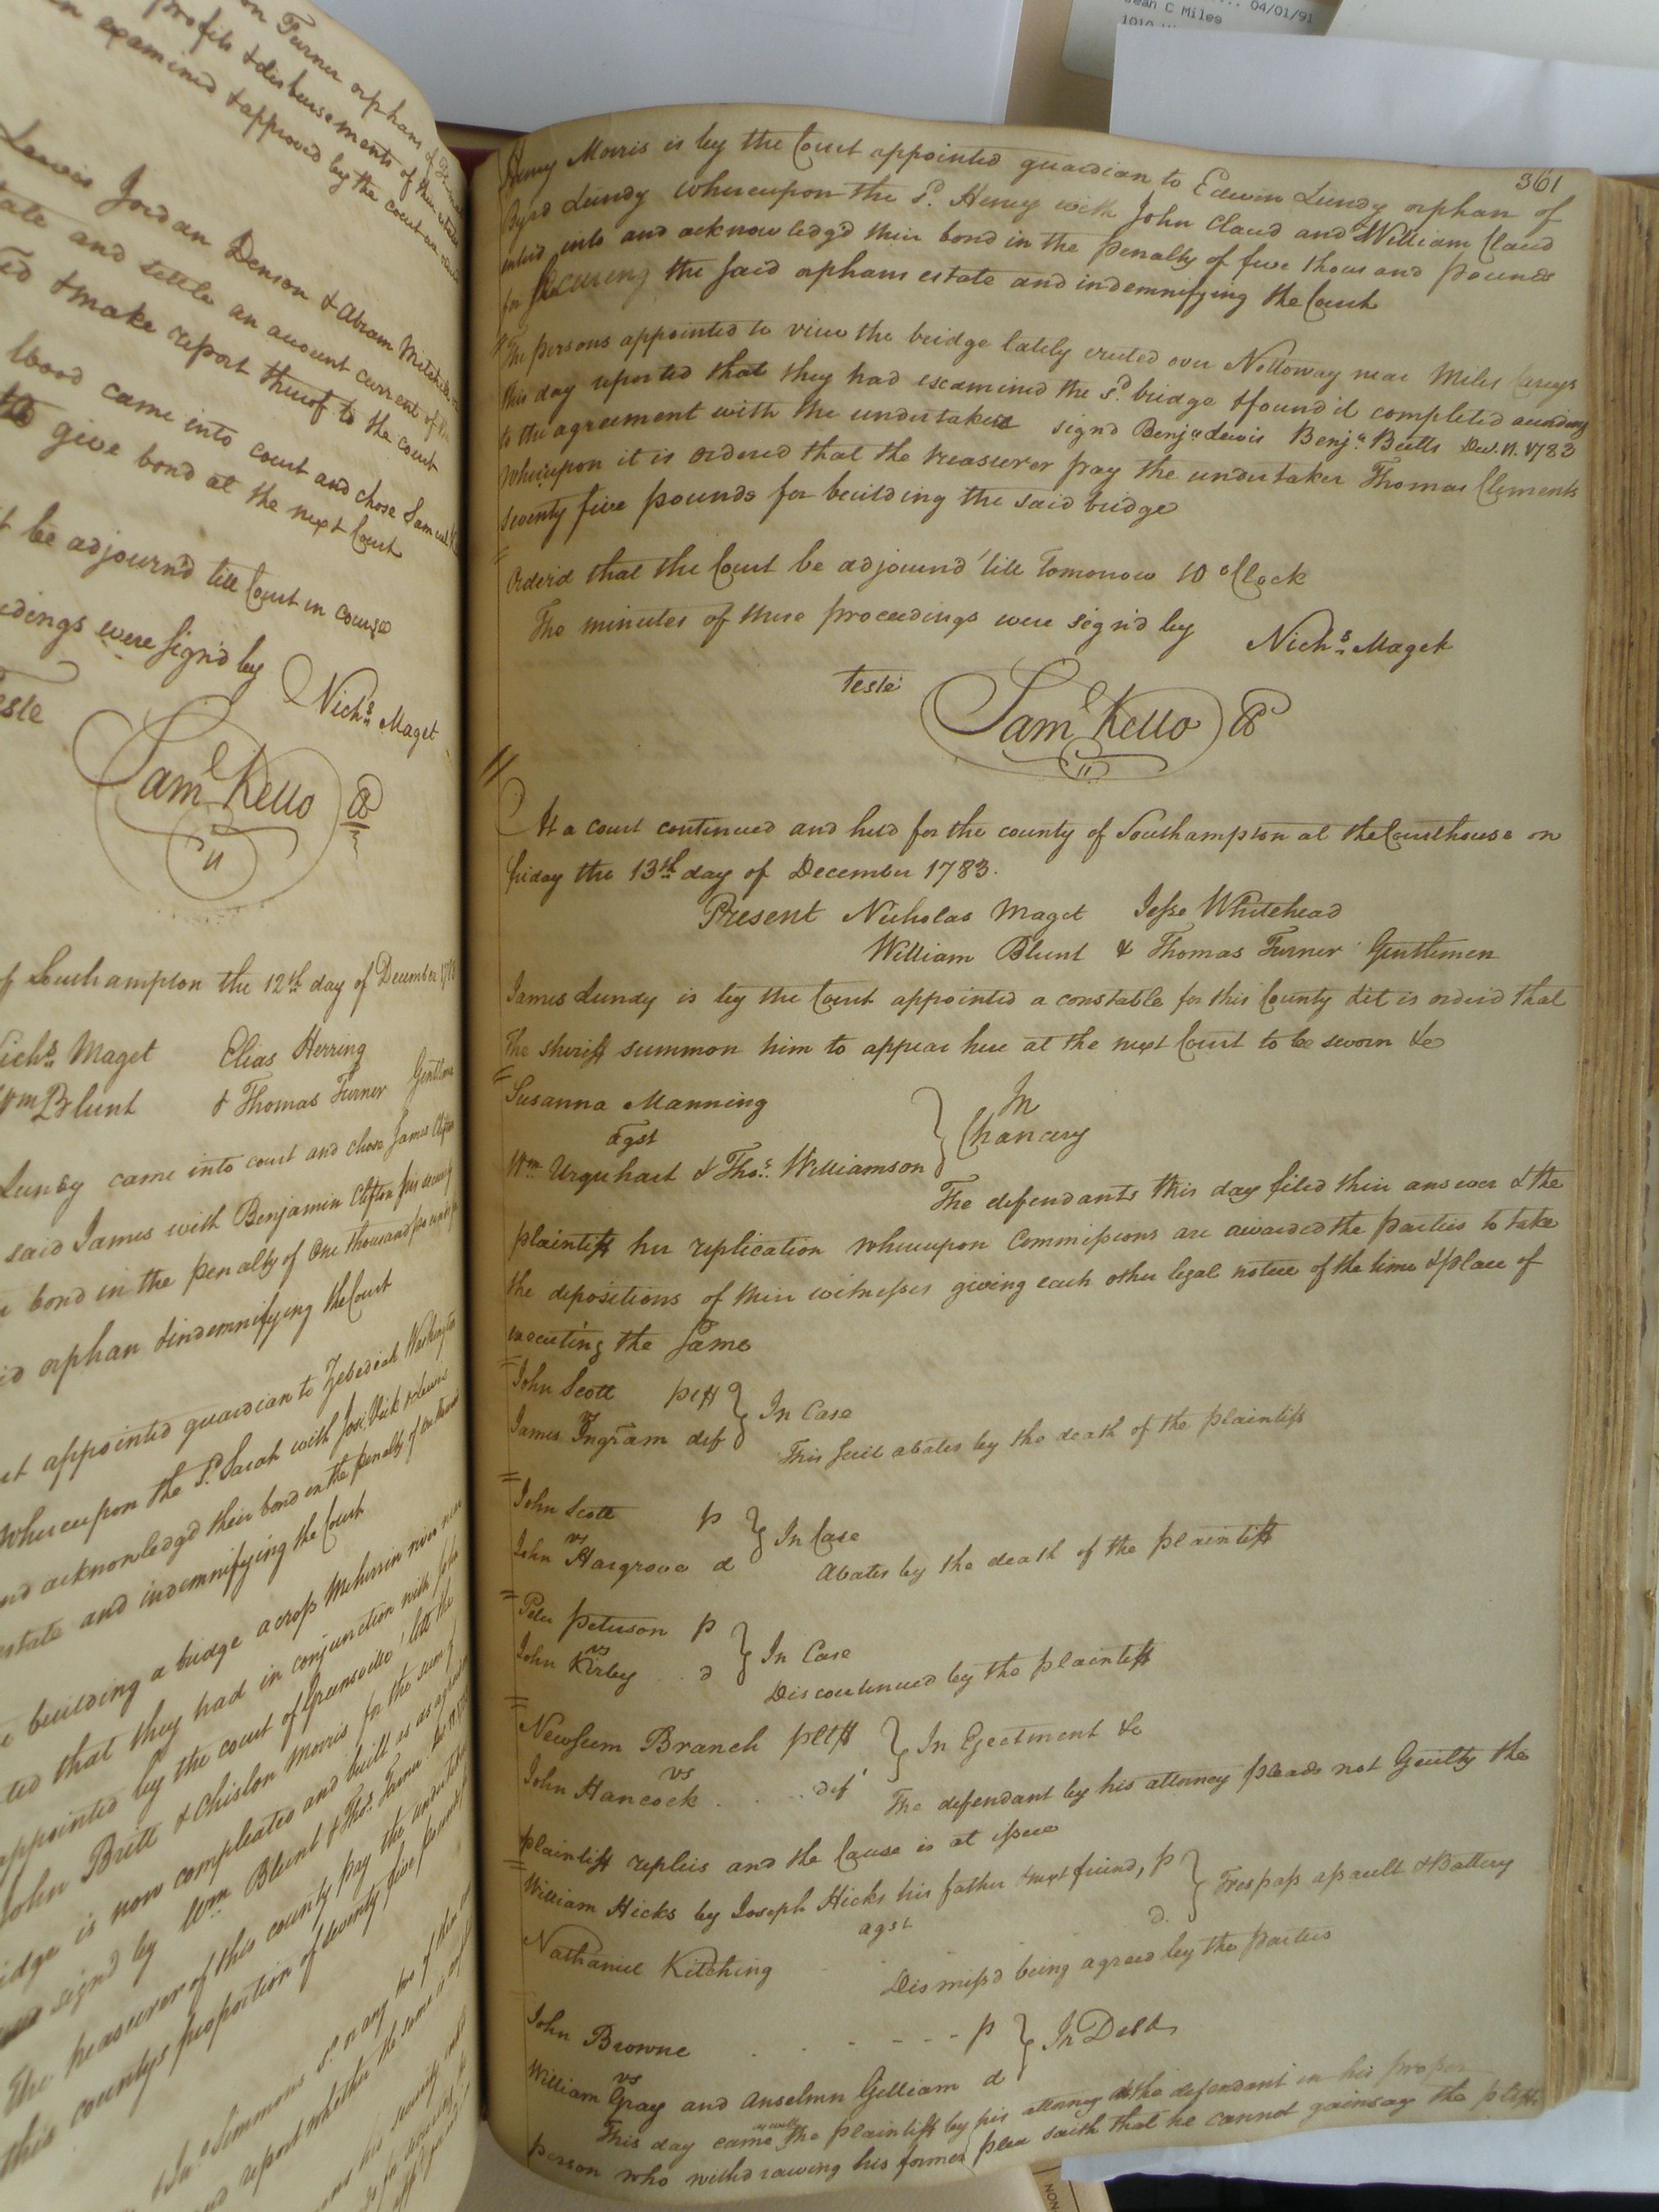 on Turner orphans of
profits & disbursements of their estates
examined & approved by the court are
Lewis Jordan Denson & Abram Mitchell
tate and settle an account current of the
ed & make report thereof to the court
Wood came into court and chose Samuel
give bond at the next Court
t be adjourn'd till Court in course
edings were sign'd by
Nichs. Maget
este
Saml Kello
f Southampton the 12th day of December
Nichs. Maget Elias Herring
Wm Blunt & Thomas Turner Gentlemen
Lundy came into court and chose James
said James with Benjamin Clifton his security
bond in the penalty of One thousand pounds
id orphan & indemnifying the Court
rt appointed guardian to Zebediah Washington
Whereupon the Sd. Sarah with Josi. Vick & Lewis
nd acknowledgd their bond in the penalty of
estate and indemnifying the Court
building a bridge across Meherrin river near
ted that they had in conjunction with
appointed by the court of Greensville lett the
John Britt & Chislon Morris for the sum of
idge is now compleated and built is as
signd by Wm Blunt & Thos. Turner
The treasurer of this county pay the undertaker
this countys proportion of twenty five pounds
Simmons or any two of them
and report whether the same is
04/01/91
Jean C Miles
1010
361
Henry Morris is by the Court appointed guardian to Edwin Lundy orphan of
Byrd Lundy whereupon the Sd. Henry with John Claud and William Claud
enterd into and acknowledg'd their bond in the penalty of five thousand pounds
for securing the said orphans estate and indemnifying the Court
The persons appointed to view the bridge lately erected over Nottoway near Miles Careys
this day reported that they had examined the sd. bridge & found it completed according
to the agreement with the undertaker signd Benja Lewis Benja. Butts Decr. 11. 1783
Whereupon it is ordered that the treasurer pay the undertaker Thomas Clements
seventy five pounds for building the said bridge
Orderd that the Court be adjournd 'till Tomorrow 10 oClock
The minutes of these proceedings were sign'd by Nichs. Maget
Teste
Saml Kello
At a court continued and held for the county of Southampton at the Courthouse on
friday the 13th day of December 1783.
Present Nicholas Maget Jesse Whitehead
William Blunt & Thomas Turner Gentlemen
James Lundy is by the Court appointed a constable for this County & it is orderd that
The sheriff summon him to appear here at the next Court to be sworn &c
Susanna Manning
agst
Wm. Urquhart & Thos. Williamson
In
Chancery
The defendants this day filed their answer & the
plaintiff her replication whereupon Commissions are awarded the parties to take
the depositions of their witnesses giving each other legal notice of the time & place of
executing the Same
John Scott pltff
vs
James Ingram def
In Case
This suit abates by the death of the plaintiff
John Scott p
vs
John Hargrove d
In Case
Abates by the death of the plaintiff
Peter Peterson p
vs
John Kirby .. d
In Case
Discontinued by the plaintiff
Newsum Branch pltff
vs
John Hancock .... def
In Ejectment &c
The defendant by his attorney pleads not Guilty the
plaintiff replies and the Cause is at issue
William Hicks by Joseph Hicks his father & next friend, p
agst
Nathaniel Kitching d.
Trespass assault & Battery
Dismissd being agreed by the parties
John Browne - - - - p
vs
William Gray and Anselmn Gilliam d
In Debt
This day came as well the plaintiff by his attorney as the defendant in his proper
person who withdrawing his former plea saith that he cannot gainsay the pltffs